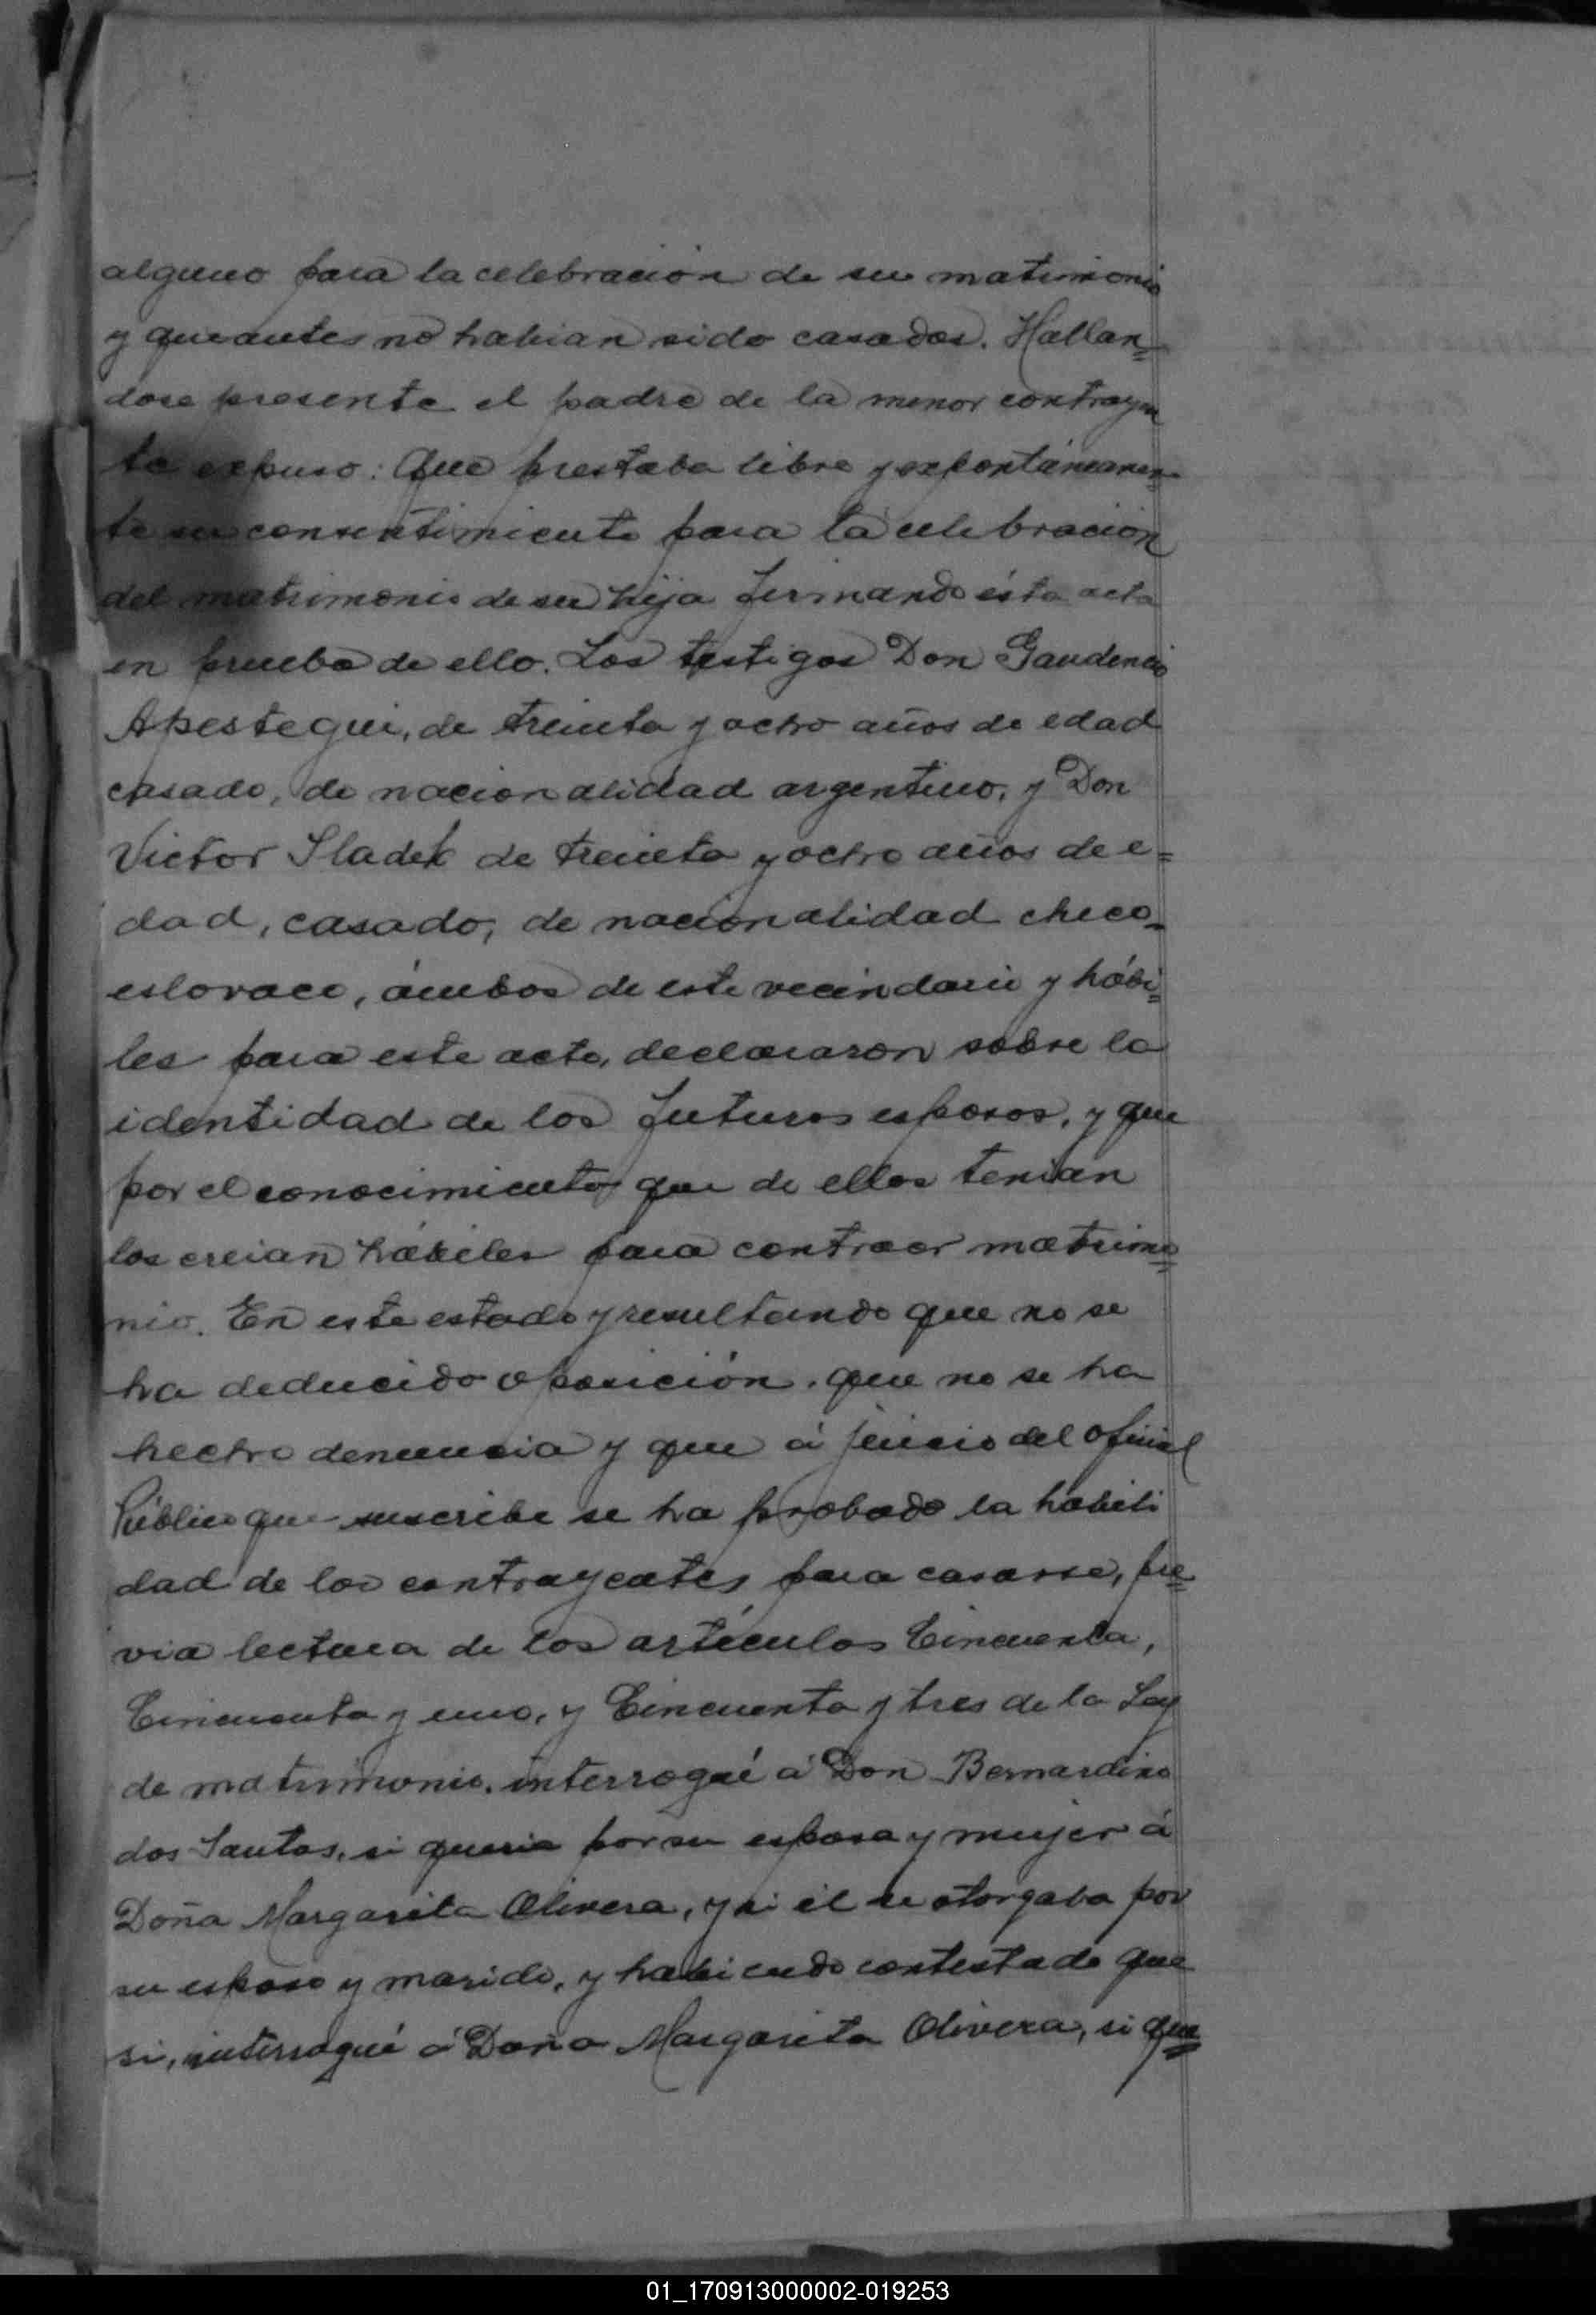 alguno para la celebración de su matrimonio
y que antes no habian sido casados. Hallan=
dose presente el padre de la menor contrayen
te expuso: Que prestaba libre y expontáneamen=
te su consentimiento para la celebración
del matrimonio de su hija firmando ésta acta
en prueba de ello. Los testigos Don Gaudencio
Apestegui, de treinta y ocho años de edad
casado, de nacionalidad argentino, y Don
Victor Sladek de treinta y ocho años de e=
dad, casado, de nacionalidad checo=
eslovaco, ámbos de este vecindario y hábi=
les para este acto, declararon sobre la
identidad de los futuros esposos, y que
por el conocimiento que de ellos tenian
los creian hábiles para contraer matrimo=
nio. En este estado y resultando que no se
ha deducido oposición, que no se ha
hecho denuncia y que á juicio del Oficial
Público que suscribe se ha probado la habili
dad de los contrayentes para casarse, pre=
via lectura de los artículos Cincuenta,
Cincuenta y uno, y Cincuenta y tres de la Ley
de matrimonio, interrogué á Don Bernardino
dos Santos, si queria por su esposa y mujer á
Doña Margarita Olivera, y si él se otorgaba por
su esposo y marido, y habiendo contestado que
si, interrogué á Doña Margarita Olivera, si que=
01_170913000002-019253